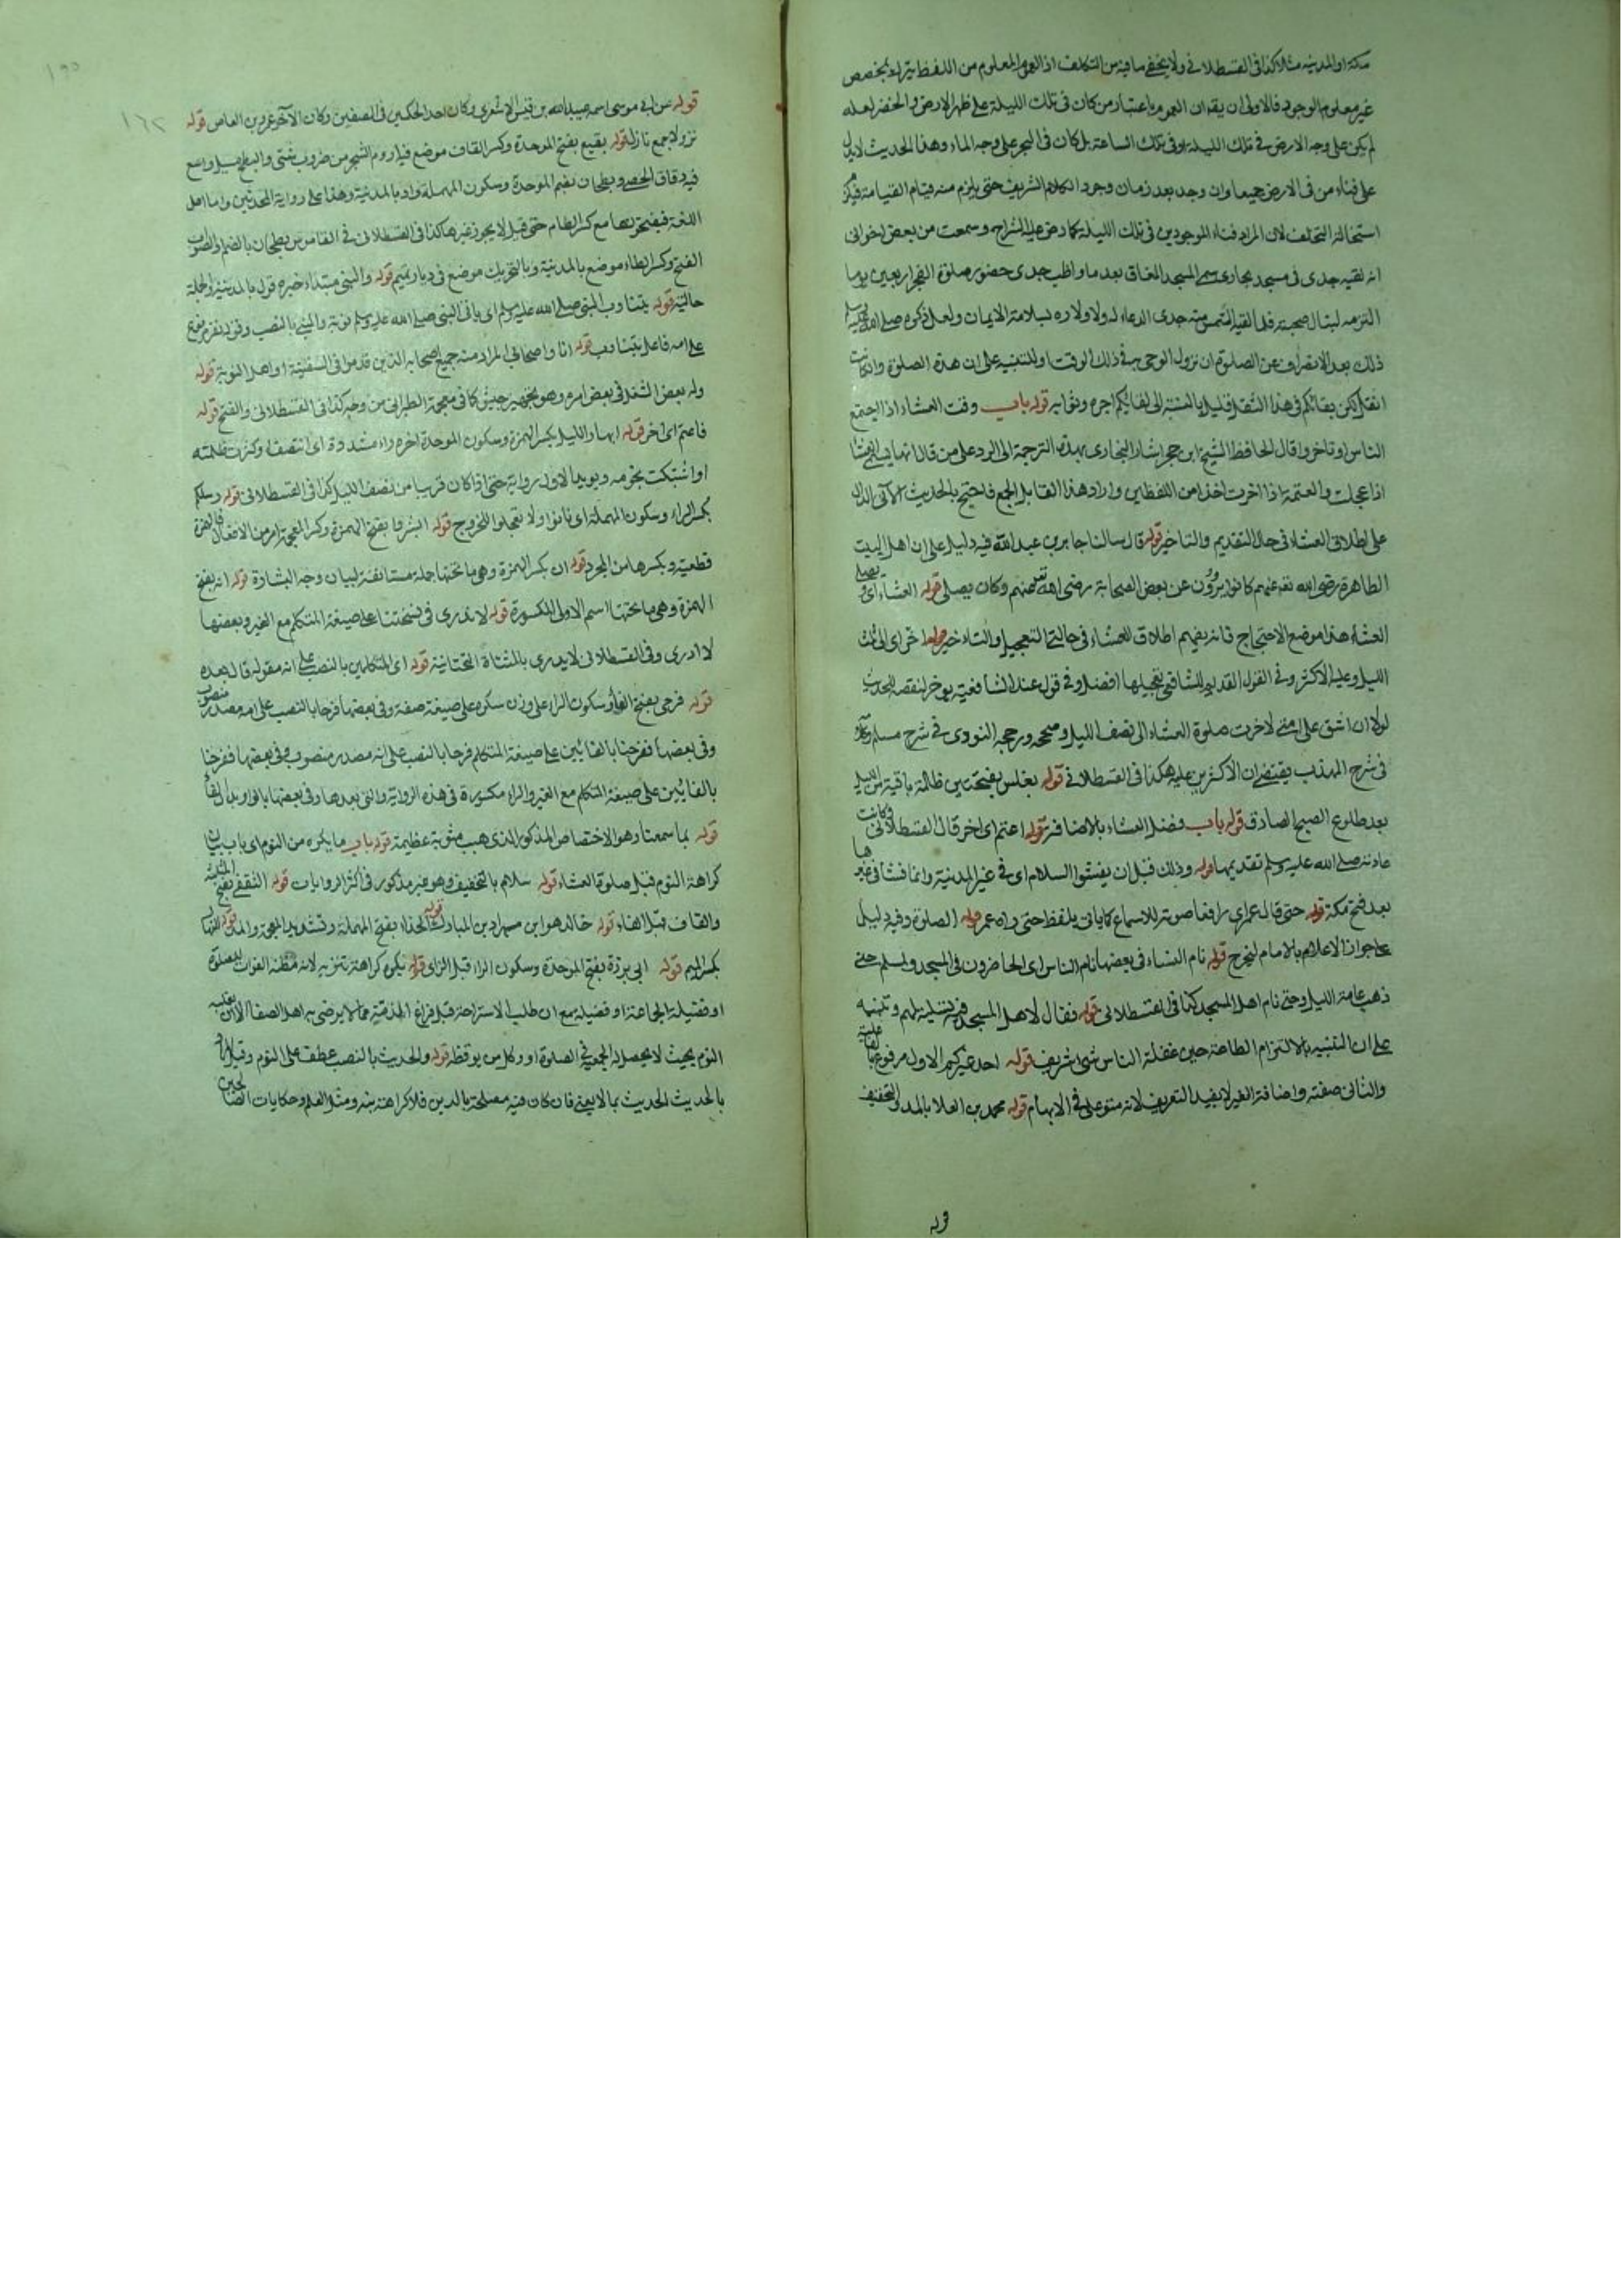 مكة او المدينة مثلا كذا في القسطلاني ولا يخفى ما فيه من التكلف اذ العموم المعلوم من اللفظ يترك بمخصص
غير معلوم الوجود فالاولى ان يقال ان العموم باعتبار من كان في تلك الليلة على ظهر الارض والخضر لعله
لم يكن على وجه الارض في تلك الليلة او في تلك الساعة بل كان في البحر على وجه الماء وهذا الحديث لا يدل
على فناء من في الارض جميعا وان وجد بعد زمان وجود الكلام الشريف حتى يلزم منه قيام القيامة
استحالة التخلف لان المراد فناء الموجودين في تلك الليلة كما رضى عليه الشراح وسمعت من بعض اخواني
انه لقيه جدي في مسجد بخارى سمي المسجد المغاق بعد ما واظب جدي حضور صلوة الفجر اربعين يوما
التزمه لينال صحبته فلما لقيه التمس منه جدي الدعاء له ولاولاده لسلامة الايمان ولعل ذكره صلى الله عليه وسلم
ذلك بعد الانصراف عن الصلوة ان نزول الوحي في ذلك الوقت او للتنبيه على ان هذه الصلوة وان كانت
اثقل لكن بقائكم في هذا الثقل قليل بالنسبة الى لقائكم اجره وثوابه قوله باب وقت العشاء اذا اجتمع
الناس او تاخروا قال الحافظ الشيخ ابن حجر اشار البخاري بهذه الترجمة الى الرد على من قال انها يسمى العشاء
اذا عجلت والعتمة اذا اخرت اخذا من اللفظين واراد هذا القايل الجمع فاحتج بالحديث الآتي الدال
على اطلاق العشاء في حال التقديم والتاخير قوله قال سالنا جابر بن عبد الله فيه دليل على ان اهل البيت
الطاهرة رضي الله تعالى عنهم كانوا يروون عن بعض الصحابة رضي الله تعالى عنهم وكان يصلي قوله العشاء اي ويصلي
العشاء هذا موضع الاحتجاج فانه يفهم اطلاق العشاء في حالتي التعجيل والتاخير قوله اخر اي الى ثلث
الليل وعليه الاكثر وفي القول القديم للشافعي تعجيلها افضل وفي قول عند الشافعية يوخر لنصفه لحديث
لولا ان اشق على امتي لاخرت صلوة العشاء الى نصف الليل وصححه ورجحه النووي في شرح مسلم وكلامه
في شرح المهذب يقتضي ان الاكثرين عليه هكذا في القسطلاني قوله بغلس بفتحتين ظلمة باقية من الليل
بعد طلوع الصبح الصادق قوله باب فضل العشاء بالاضافة قوله اعتم اي اخر قال القسطلاني وكانت
عادته صلى الله عليه وسلم تقديمها قوله وذلك قبل ان يفشوا الاسلام اي في غير المدينة وانما فشا في غيرها
بعد فتح مكة قوله حتى قال عمر اي رافعا صوته للاسماع كما ياتي بلفظ حتى ناداه عمر قوله الصلوة وفيه دليل
على جواز الاعلام بالامام ليخرج قوله نام النساء في بعضها نام الناس اي الحاضرون في المسجد ولمسلم حتى
ذهب عامة الليل وحتى نام اهل المسجد كذا في القسطلاني قوله فقال لاهل المسجد فيه تسلية لهم وتنبيه
على ان التنبيه بالالتزام الطاعة حين غفلة الناس شيء شريف قوله احد غيركم الاول مرفوع بالفاعلية
والثاني صفته واضافة الغير لا يفيد التعريف لانه متوغل في الابهام قوله محمد بن العلا بالمد والتخفيف
قوله
قوله عن ابي موسى اسمه عبد الله بن قيس الاشعري وكان احد الحكمين في الصفين وكان الآخر عمرو بن العاص قوله
نزولا جمع نازل قوله بقيع بفتح الموحدة وكسر القاف موضع فيه اروم الشجر من ضروب شتى والبطح مسيل واسع
فيه دقاق الحصى وبطحان بضم الموحدة وسكون المهملة واد بالمدينة وهذا على رواية المحدثين واما اهل
اللغة فبفتح بائها مع كسر الطاء حتى قيل لا يجوز غيرها كذا في القسطلاني في القاموس بطحان بالضم والصواب
الفتح وكسر الطاء موضع بالمدينة وبالتحريك موضع في ديار تميم قوله والنبي مبتداء خبره قوله بالمدينة والجملة
حالية قوله يتناوب النبي صلى الله عليه وسلم اي ياتي النبي صلى الله عليه وسلم نوبة والنبي بالنصب وقوله نفر مرفوع
على انه فاعل يتناوب قوله انا واصحابي المراد منه جميع اصحابه الذين قدموا في السفينة او اهل النوبة قوله
وله بعض الشغل في بعض امره وهو تجهيز جيش كما في معجم الطبراني من وجه كذا في القسطلاني والفتح قوله
فاعتم اي اخر قوله ابهار الليل بكسر الهمزة وسكون الموحدة اخره راء مشددة اي انتصف او كثرت ظلمته
او اشتبكت نجومه ويويد الاول رواية حتى اذا كان قريبا من نصف الليل كذا في القسطلاني قوله رسلكم
بكسر الراء وسكون المهملة اي تانوا ولا تعجلوا للخروج قوله ابشروا بفتح الهمزة وكسر المعجمة امر من الافعال فالهمزة
قطعية وبكسرها من المجرد قوله ان بكسر الهمزة وهي ما تحتها جملة مستانفة لبيان وجه البشارة قوله انه بفتح
الهمزة وهي ما تحتها اسم الاولى المكسورة قوله لا ندري في نسختنا على صيغة المتكلم مع الغير وبعضها
لا ادري وفي القسطلاني لا يدري بالمثناة التحتانية قوله اي الكلمتين بالنصب على انه مقوله قال بعده
قوله فرحى بفتح الفاء وسكون الراء على وزن سكرى على صيغة صفة وفي بعضها فرحا بالنصب على انه مصدر منصوب
وفي بعضها ففرحنا بالفائين على صيغة المتكلم فرحا بالنصب على انه مصدر منصوب وفي بعضها ففرحنا
بالفائين على صيغة المتكلم مع الغير والراء مكسورة في هذه الرواية والتي بعدها وفي بعضها بالواو بدل الفاء
قوله بما سمعنا وهو الاختصاص المذكور الذي هب مثوبة عظيمة قوله باب ما يكره من النوم اي باب بيان
كراهة النوم قبل صلوة العشاء قوله سلام بالتخفيف وهو غير مذكور في اكثر الروايات قوله الثقفي بفتح المثلثة
والقاف قبل الفاء قوله خالد هو ابن مهران بن المبارك قوله الحذاء بفتح المهملة وتشديد المعجمة والمد قوله المنهال
بكسر الميم قوله ابي برزة بفتح الموحدة وسكون الراء قبل الزاي قوله يكره كراهة تنزيه لانه مظنة الفوات للصلوة
او فضيلة الجماعة او فضيلة مع ان طلب الاستراحة قبل فراغ الذمة مما لا يرضى به اهل الصفا الا ان يغلبه
النوم بحيث لا يحصل له الجمعية في الصلوة او وكل من يوقظه قوله والحديث بالنصب عطف على النوم وقيل المراد
بالحديث الحديث بما لا يعني فان كان فيه مصلحة بالدين فلا كراهة فيه ومثل العلم وحكايات الصالحين